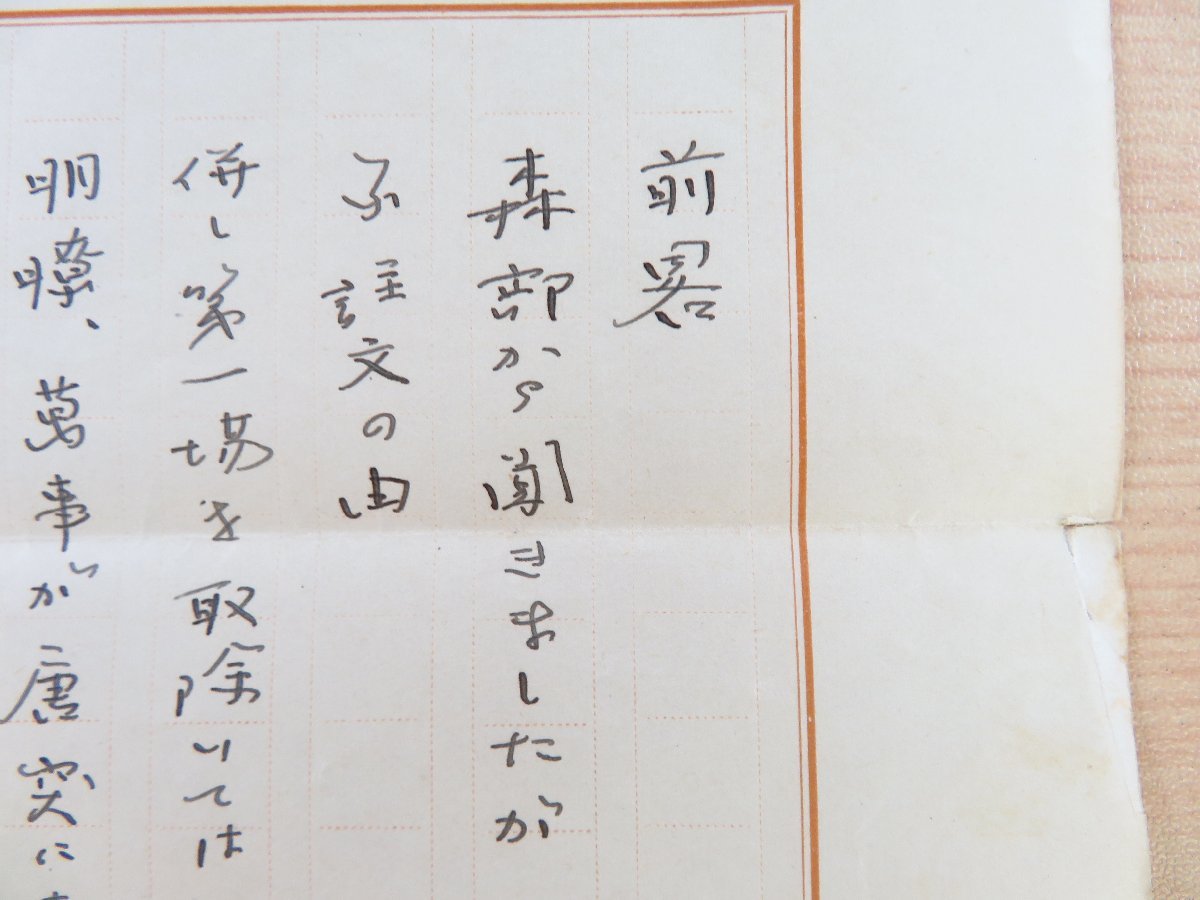 前畧
森部から聞きましたが
ふ註文の由
併し第一場を取除いては
明瞭、萬事が唐突に